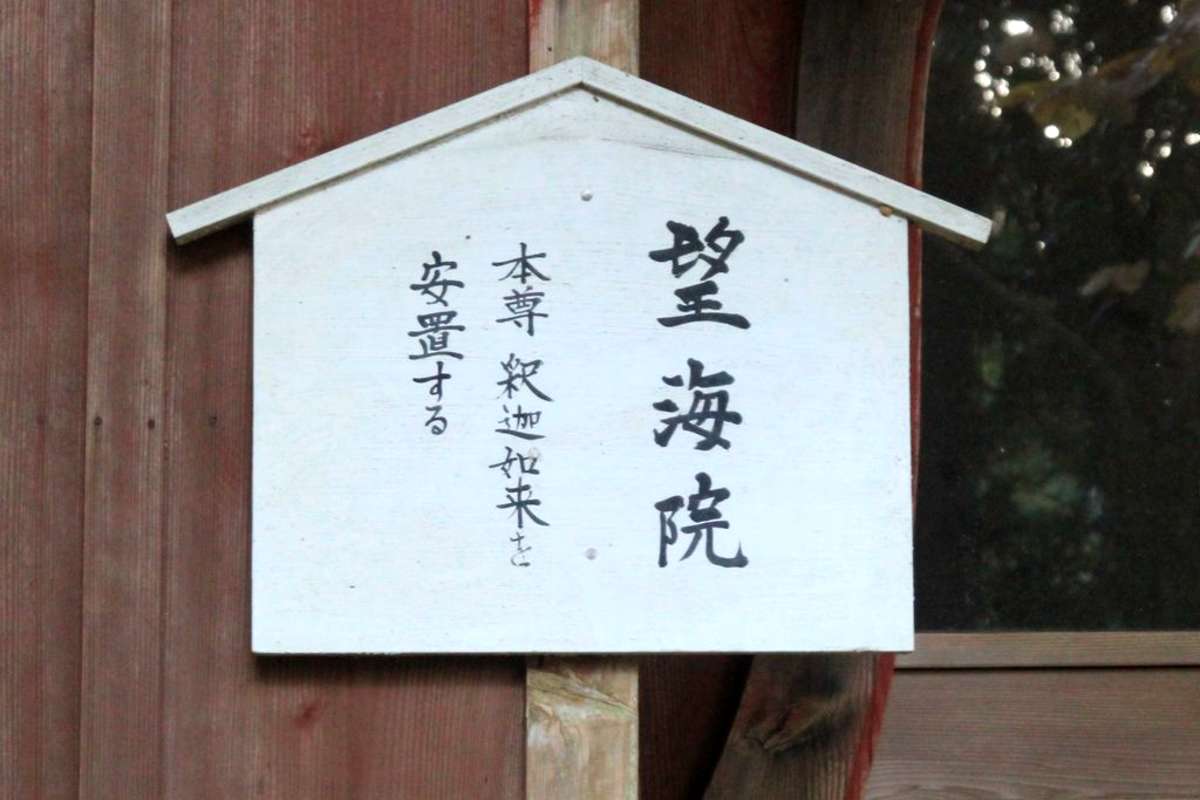 望海院
本尊 釈迦如来を
安置する